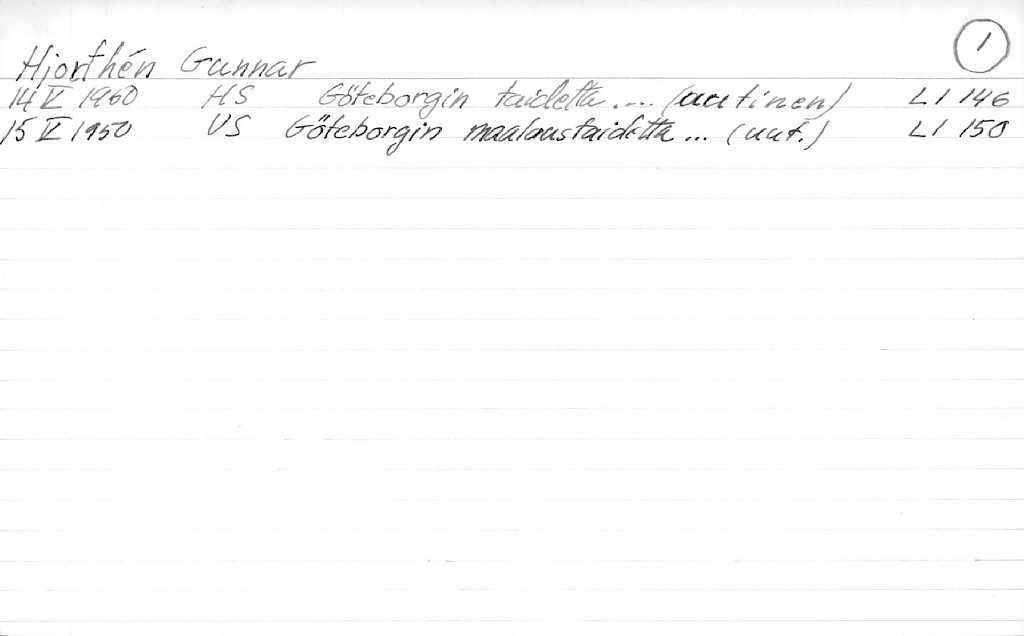 1
Hjorthén Gunnar
14 V 1950 HS Göteborgin taidetta.... (uutinen) LI 146
15 V 1950 US Göteborgin maalaustaidetta... (uut.) LI 150